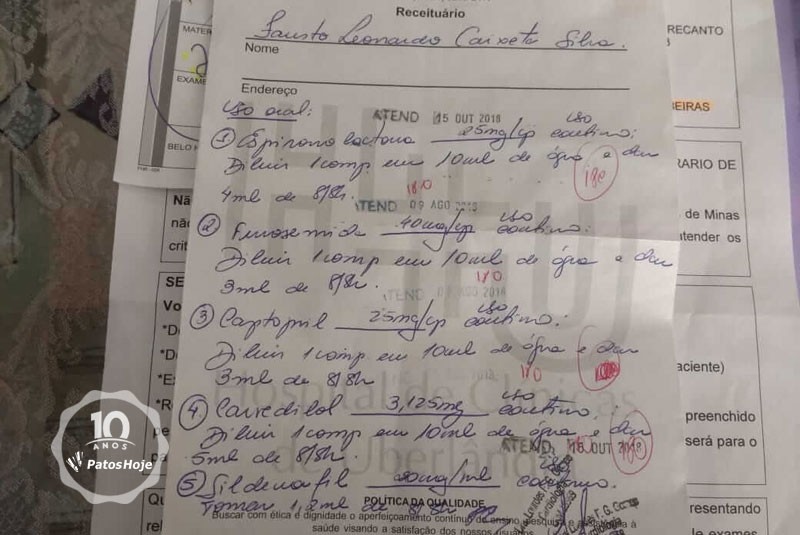 Receituário
Fausto Leonardo Caixeta Silva.
Nome
Endereço
Uso oral:
ATEND 15 OUT 2018
① Espironolactona 25mg/cp uso contínuo:
Diluir 1 comp em 10ml de água e dar
4ml de 8/8h.
180
180
ATEND 09 AGO 2018
② Furosemida 40mg/cp uso contínuo:
Diluir 1 comp em 10ml de água e dar
3ml de 8/8h.
180
ATEND 09 AGO 2018
③ Captopril 25mg/cp uso contínuo:
Diluir 1 comp em 10ml de água e dar
3ml de 8/8h
180
Hospital de Clínicas
de Uberlândia
④ Carvedilol 3,125mg uso contínuo:
Diluir 1 comp em 10ml de água e dar
5ml de 8/8h.
ATEND 15 OUT 2018
⑤ Sildenafil mg/ml contínuo
Tomar 1,2ml de 8/8h
POLÍTICA DA QUALIDADE
Buscar com ética e dignidade o aperfeiçoamento contínuo de ensino, pesquisa e à
saúde visando a satisfação dos nossos usuários
MATER
EXAME
BELO H
Nã
nã
crit
SE
Vo
*D
*D
*E
*R
pe
Qu
rel
RECANTO
EIRAS
RARIO DE
de Minas
atender os
aciente)
preenchido
será para o
resentando
le exames
10
ANOS
PatosHoje